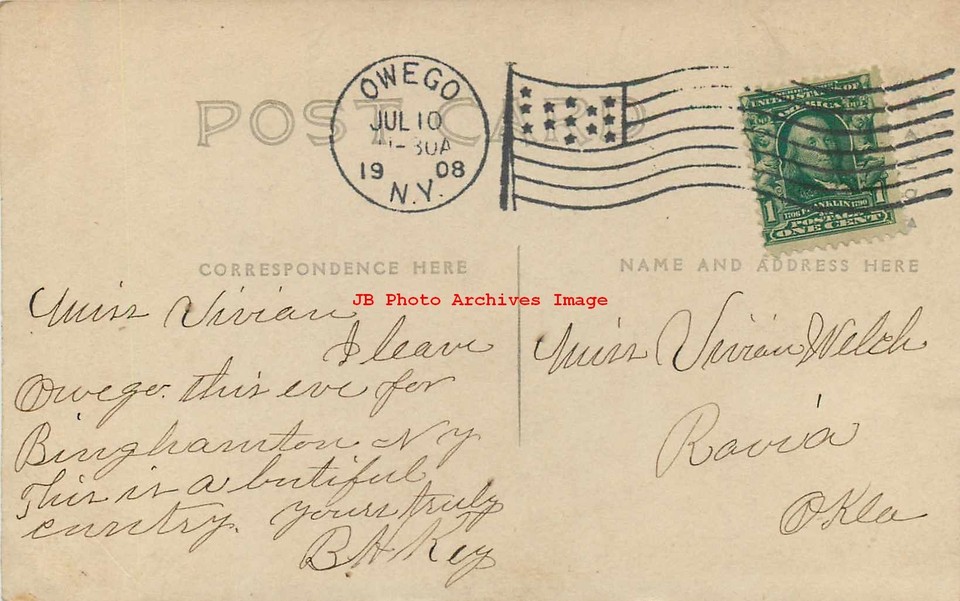 POST CARD
OWEGO
JUL 10
-30A
1908
N.Y.
UNITED STATES OF
AMERICA
1 1706 FRANKLIN 1790 1
POSTAGE
ONE CENT
CORRESPONDENCE HERE
NAME AND ADDRESS HERE
JB Photo Archives Image
Miss Vivian
I leave
Owego. this eve for
Binghamton NY
This is a butiful
cuntry. yours truly
B H Key
Miss Vivian Welch
Ravia
Okla